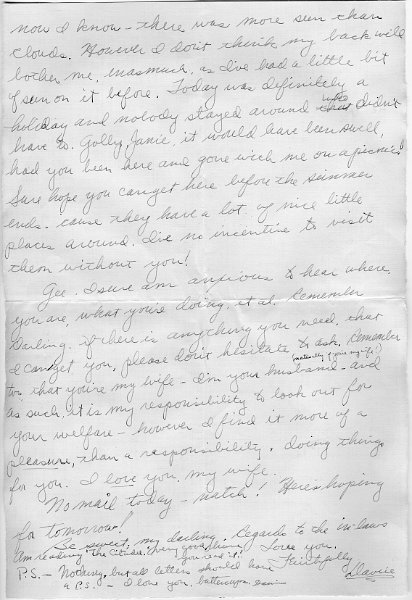 now I know - there was more sun than
clouds. However I don't think my back will
bother me, inasmuch, as I've had a little bit
of sun on it before. Today was definitely a
holiday and nobody stayed around who didn't
have to. Golly, Janie, it would have been swell,
had you been here and gone with me on a picnic!
Sure hope you can get here before the summer
ends - cause they have a lot of nice little
places around. I've no incentive to visit
them without you!
Gee - I sure am anxious to hear where
you are, what you're doing, et al. Remember
Darling, if there is anything you need, that
I can get you, please don't hesitate to ask. Remember
too, that you're my wife - I'm your husband - and
(naturally if you're my wife)
as such it is my responsibility to look out for
your welfare - however I find it more of a
pleasure, than a responsibility, doing things
for you. I love you, my wife.
No mail today - natch! Here's hoping
for tomorrow!
Be sweet, my darling. Regards to the in-laws
Am reading "The Citadel" very good thing. you it! Love you,
Faithfully
P.S. - Nothing, but all letters should have
a P.S. - I love you, buttercup,
Davie